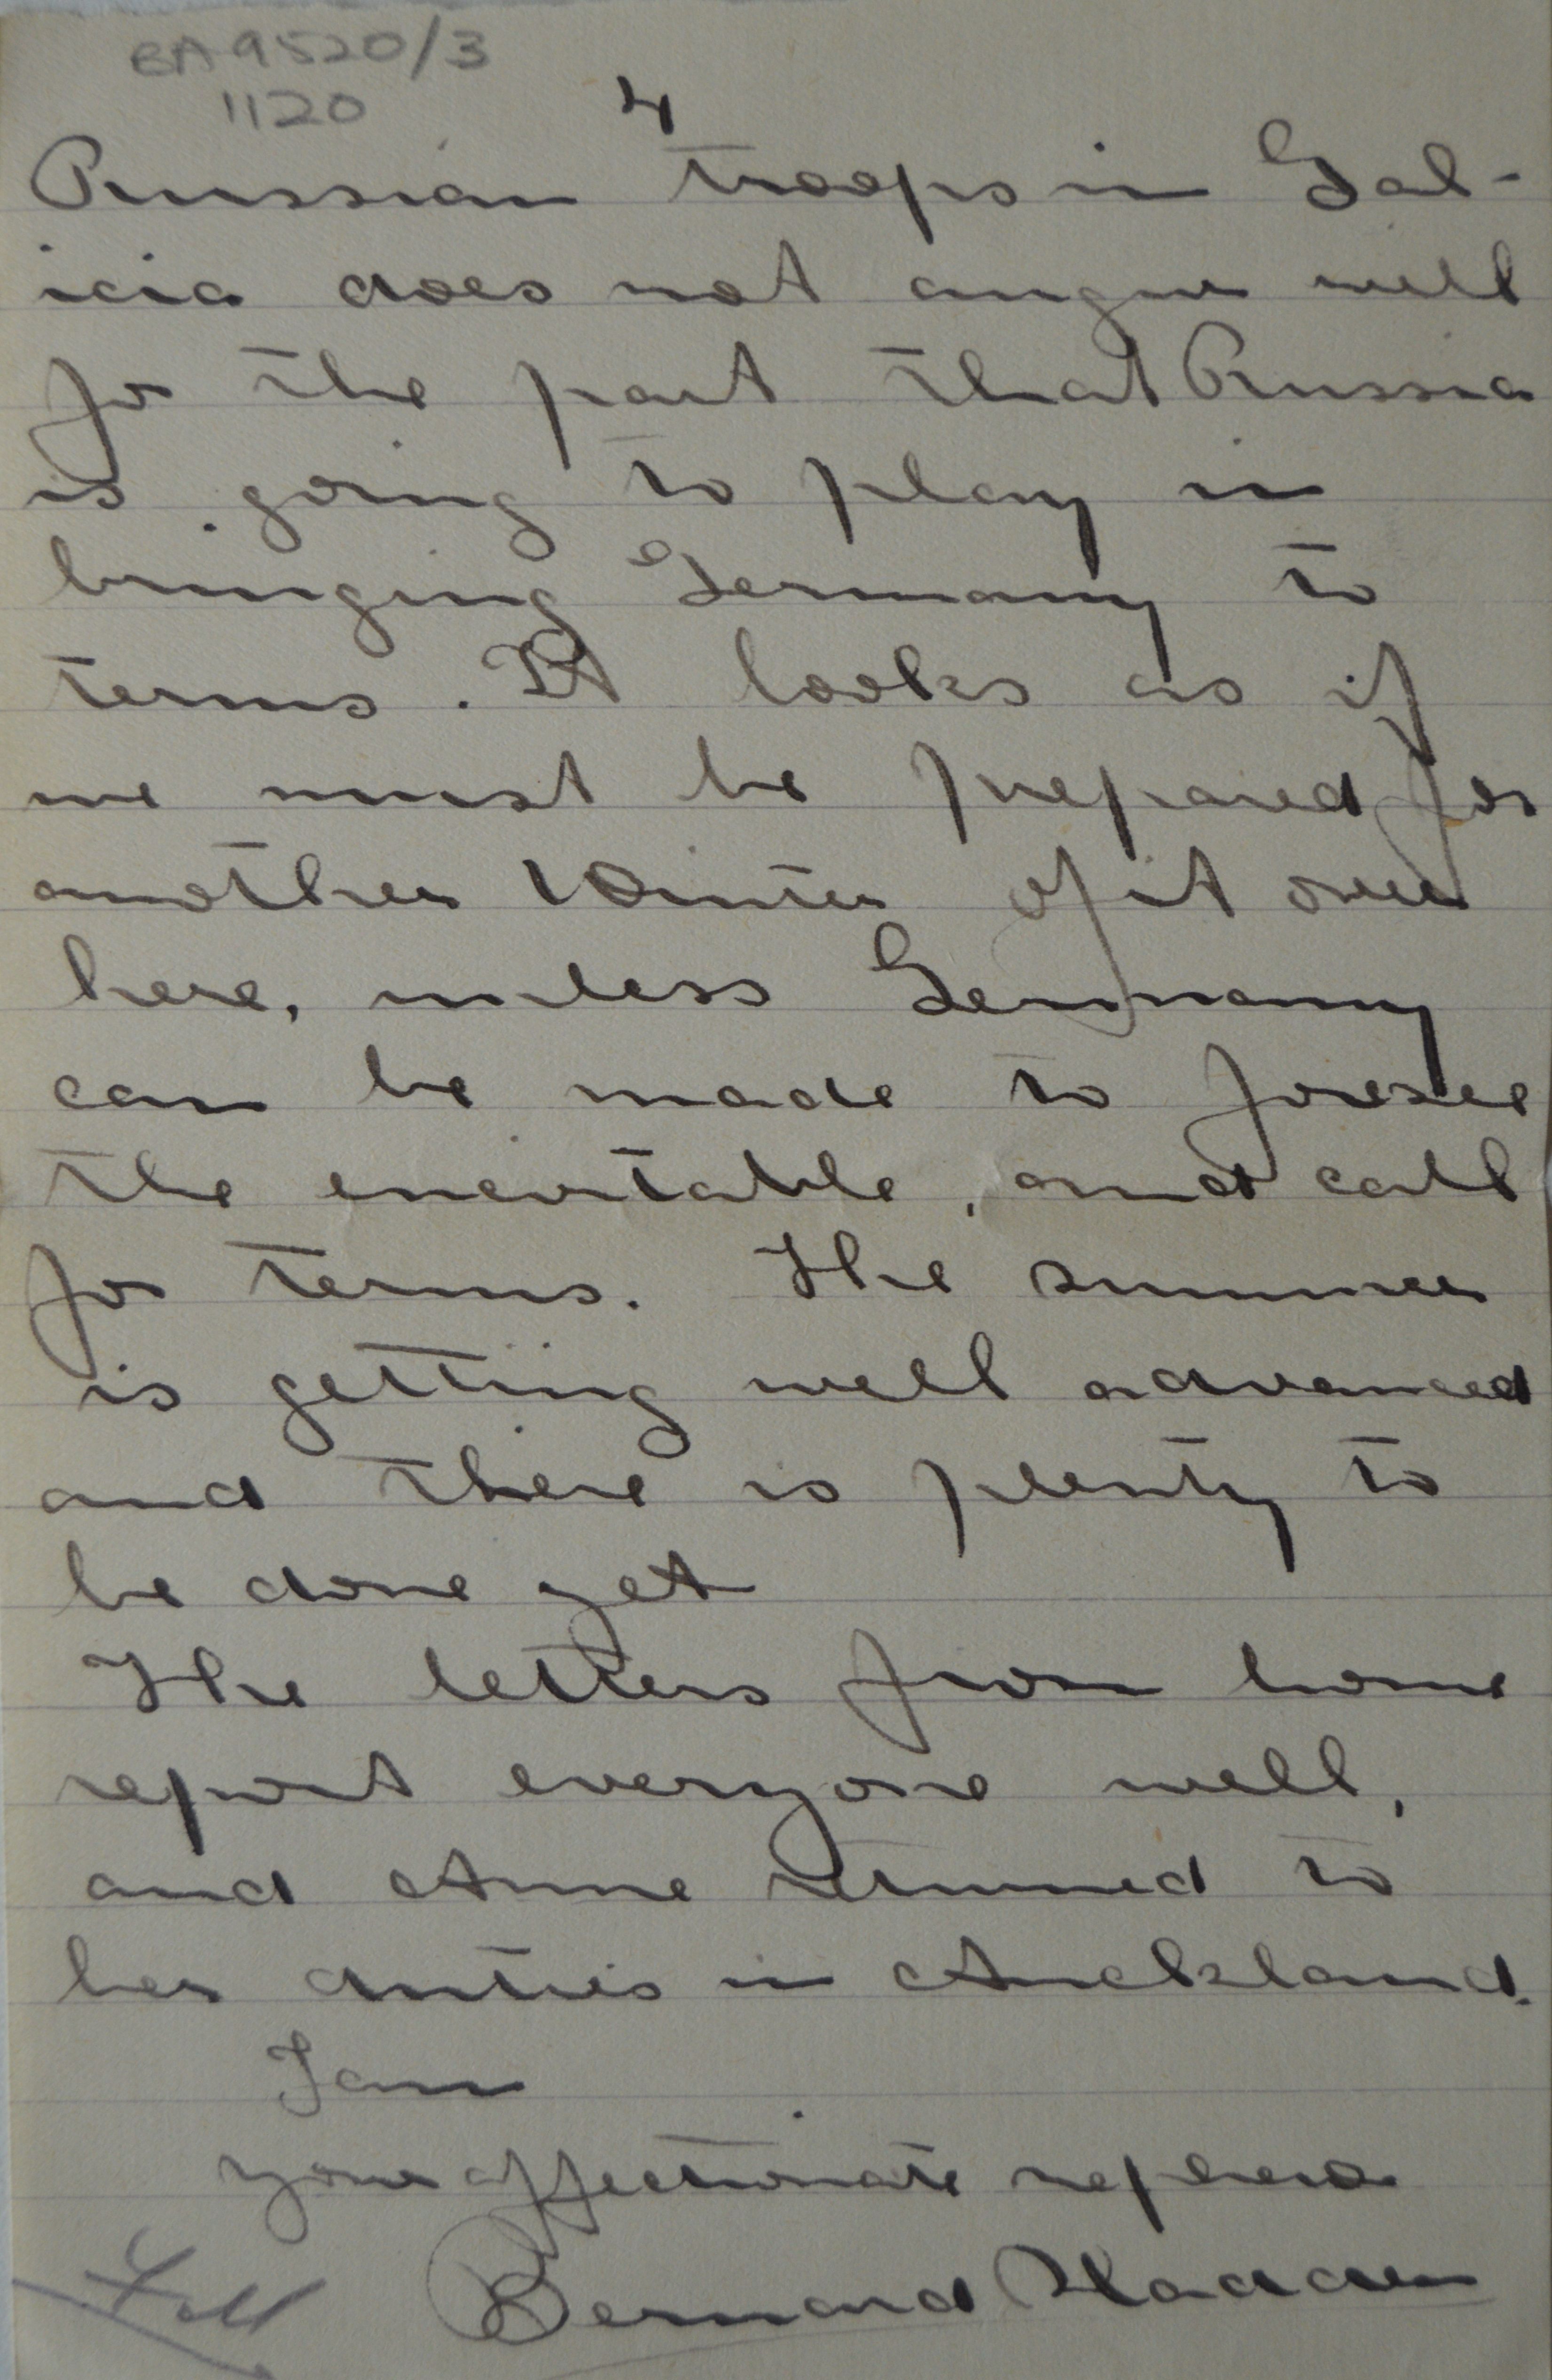 BA9520/3
1120
4
Russian troops in Gal-
icia does not augur well
for the part that Russia
is going to play in
bringing Germany to
terms. It looks as if
we must be prepared for
another Winter of it over
here, unless Germany
can be made to foresee
the enevitable, and call
for terms. The summer
is getting well advanced
and there is plenty to
be done yet
The letters from home
report everyone well,
and Anne returned to
her anties in Auckland.
I am
your affectionate nephew
Bernard